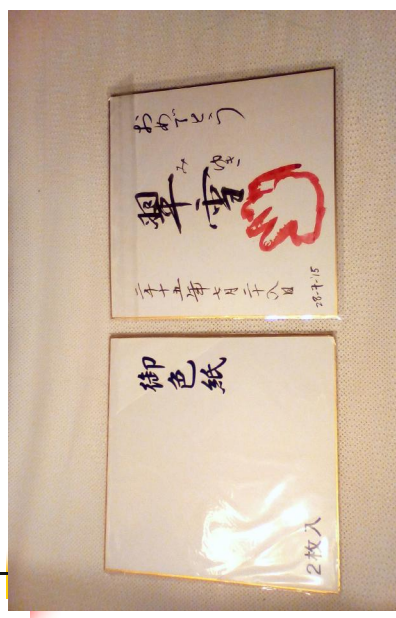 おめでとう
みゆき
翠雪
二千十五年七月二十八日
28-7-15
御色紙
2枚入